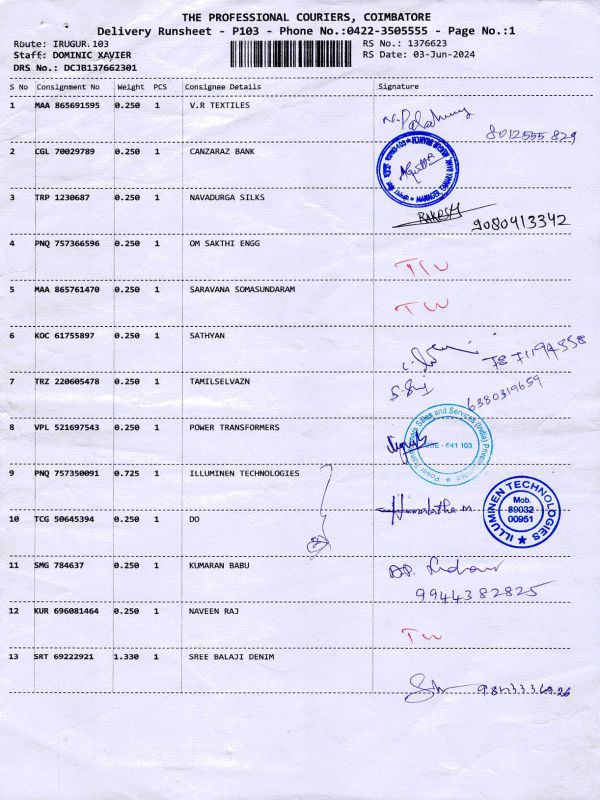 THE PROFESSIONAL COURIERS, COIMBATORE
Delivery Runsheet - P103 - Phone No.:0422-3505555 - Page No.:1
Route: IRUGUR 103
RS No.: 1376623
Staff: DOMINIC XAVIER
RS Date: 03-Jun-2024
DRS No.: DCJB137662301
S No Consignment No Weight PCS Consignee Details Signature
1 MAA 865691595 0.250 1 V.R TEXTILES
8012555 829
2 CGL 70029789 0.250 1 CANZARAZ BANK
3 TRP 1230687 0.250 1 NAVADURGA SILKS
RAKESH 9080413342
4 PNQ 757366596 0.250 1 OM SAKTHI ENGG
5 MAA 865761470 0.250 1 SARAVANA SOMASUNDARAM
6 KOC 61755897 0.250 1 SATHYAN
7 TRZ 220605478 0.250 1 TAMILSELVAZN
6380319659
8 VPL 521697543 0.250 1 POWER TRANSFORMERS
Sales and Services (India) Private
641 103
9 PNQ 757350091 0.725 1 ILLUMINEN TECHNOLOGIES
ILLUMINEN TECHNOLOGIES
Mob.
89032
00951
Himalatha.m.
10 TCG 50645394 0.250 1 DO
11 SMG 784637 0.250 1 KUMARAN BABU
9944382825
12 KUR 696081464 0.250 1 NAVEEN RAJ
13 SRT 69222921 1.330 1 SREE BALAJI DENIM